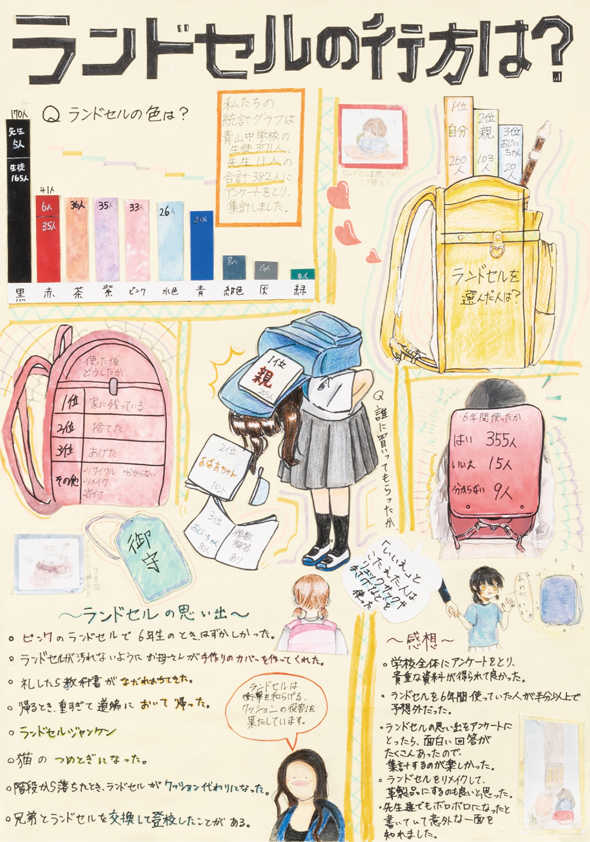 ランドセルの行方は?
Q ランドセルの色は?
170人
先生
5人
生徒
165人
41人
6人
35人
36人
35人
33人
26人
8人
黒 赤 茶 紫 ピンク 水色 青 紺色 灰 緑
私たちの
統計グラフは
青山中学校の
生徒371人、
先生11人の
合計382人に
アンケートをとり、
集計しました。
1位
自分
260人
2位
親
103人
3位
おじいちゃん
20人
ランドセルを
選んだ人は?
使った後
どうしたか
1位 家に残っている
2位 捨てた
3位 あげた
その他
・リサイクル ・分からない
・リメイク
・寄付
1位
親
Q 誰に買ってもらったか
2位
おばあちゃん
3位
おじいちゃん
複数
回答
あり
6年間使ったか
はい 355人
いいえ 15人
分からない 9人
御守
「いいえ」と
こたえた人は
リュックサックや
手さげなどを
使った
〜ランドセルの思い出〜
○ ピンクのランドセルで 6年生のとき、はずかしかった。
○ ランドセルが汚れないように お母さんが手作りのカバーを作ってくれた。
○ 礼したら教科書がなだれおちてきた。
○ 帰るとき、重すぎて道端に おいて 帰った。
○ ランドセルジャンケン
○ 猫の つめとぎになった。
○ 階段から落ちたとき、ランドセルが クッション代わりになった。
○ 兄弟とランドセルを交換して登校したことが ある。
ランドセルは
衝撃を和らげる、
クッションの役割を
果たしています。
〜感想〜
・学校全体にアンケートをとり、
貴重な資料が得られて良かった。
・ランドセルを6年間使っていた人が半分以上で
予想外だった。
・ランドセルの思い出をアンケートに
とったら、面白い回答が
たくさんあったので
集計するのが楽しかった。
・ランドセルをリメイクして、
革製品にするのも良いと思った。
・先生達でもボロボロになったと
書いていて意外な一面を
知れました。